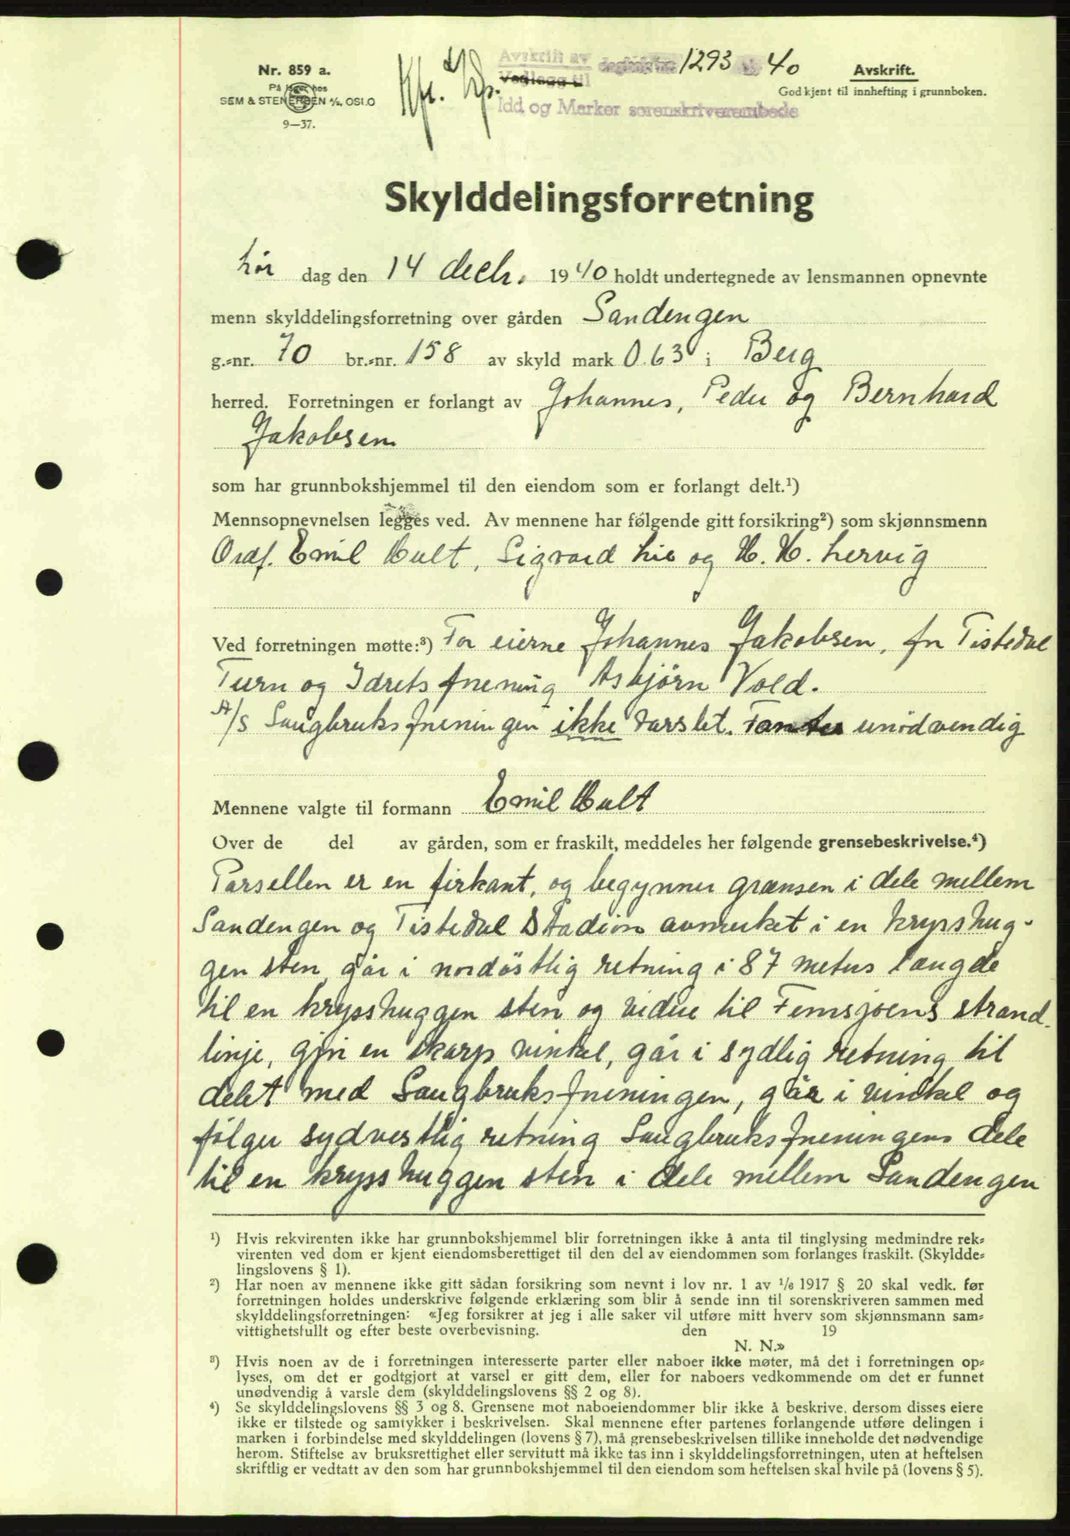 Nr. 859 a.
På lager hos
SEM & STENERSEN A/S, OSLO
9—37.
Kfr. Dp.
Avskrift av dagbok nr. 1293 40
Vedlagg til
Idd og Marker sorenskriverembede
Avskrift.
Godkjent til innhefting i grunnboken.
Skylddelingsforretning
Lør dag den 14 decbr. 1940 holdt undertegnede av lensmannen opnevnte
menn skylddelingsforretning over gården Sandengen
g.-nr. 70 br.-nr. 158 av skyld mark 0.63 i Berg
herred. Forretningen er forlangt av Johannes, Peder og Bernhard
Jakobsen
som har grunnbokshjemmel til den eiendom som er forlangt delt.¹)
Mennsopnevnelsen legges ved. Av mennene har følgende gitt forsikring²) som skjønnsmenn
Ordf. Emil Hult, Sigvard Lie og H. H. Lervig
Ved forretningen møtte:³) For eierne Johannes Jakobsen, for Tistedal
Turn og Idretsforening Asbjørn Vold.
A/S Saugbruksforeningen ikke varslet. unødvendig
Mennene valgte til formann Emil Hult
Over de del av gården, som er fraskilt, meddeles her følgende grensebeskrivelse.⁴)
Parsellen er en firkant, og begynner grænsen i dele mellem
Sandengen og Tistedal Stadion avmerket i en krysshug-
gen sten, går i nordöstlig retning i 87 meters længde
til en krysshuggen sten og videre til Femsjøens strand-
linje, gjør en skarp vinkel, går i sydlig retning til
delet med Saugbruksforeningen, går i vinkel og
følger sydvestlig retning Saugbruksforeningens dele
til en krysshuggen sten i dele mellem Sandengen
¹) Hvis rekvirenten ikke har grunnbokshjemmel blir forretningen ikke å anta til tinglysing medmindre rek-
virenten ved dom er kjent eiendomsberettiget til den del av eiendommen som forlanges fraskilt. (Skyldde-
lingslovens § 1).
²) Har noen av mennene ikke gitt sådan forsikring som nevnt i lov nr. 1 av 1/6 1917 § 20 skal vedk. før
forretningen holdes underskrive følgende erklæring som blir å sende inn til sorenskriveren sammen med
skylddelingsforretningen: «Jeg forsikrer at jeg i alle saker vil utføre mitt hverv som skjønnsmann sam-
vittighetsfullt og efter beste overbevisning. den 19
N. N.»
³) Hvis noen av de i forretningen interesserte parter eller naboer ikke møter, må det i forretningen op-
lyses, om det er godtgjort at varsel er gitt dem, eller for naboers vedkommende om det er funnet
unødvendig å varsle dem (skylddelingslovens §§ 2 og 8).
⁴) Se skylddelingslovens §§ 3 og 8. Grensene mot naboeiendommer blir ikke å beskrive, dersom disses eiere
ikke er tilstede og samtykker i beskrivelsen. Skal mennene efter partenes forlangende utføre delingen i
marken i forbindelse med skylddelingen (lovens § 7), må grensebeskrivelsen tillike inneholde det nødvendige
herom. Stiftelse av bruksrettighet eller servitutt må ikke tas inn i skylddelingsforretningen, uten at heftelsen
skriftlig er vedtatt av den som har grunnbokshjemmel til den eiendom som heftelsen skal hvile på (lovens § 5).